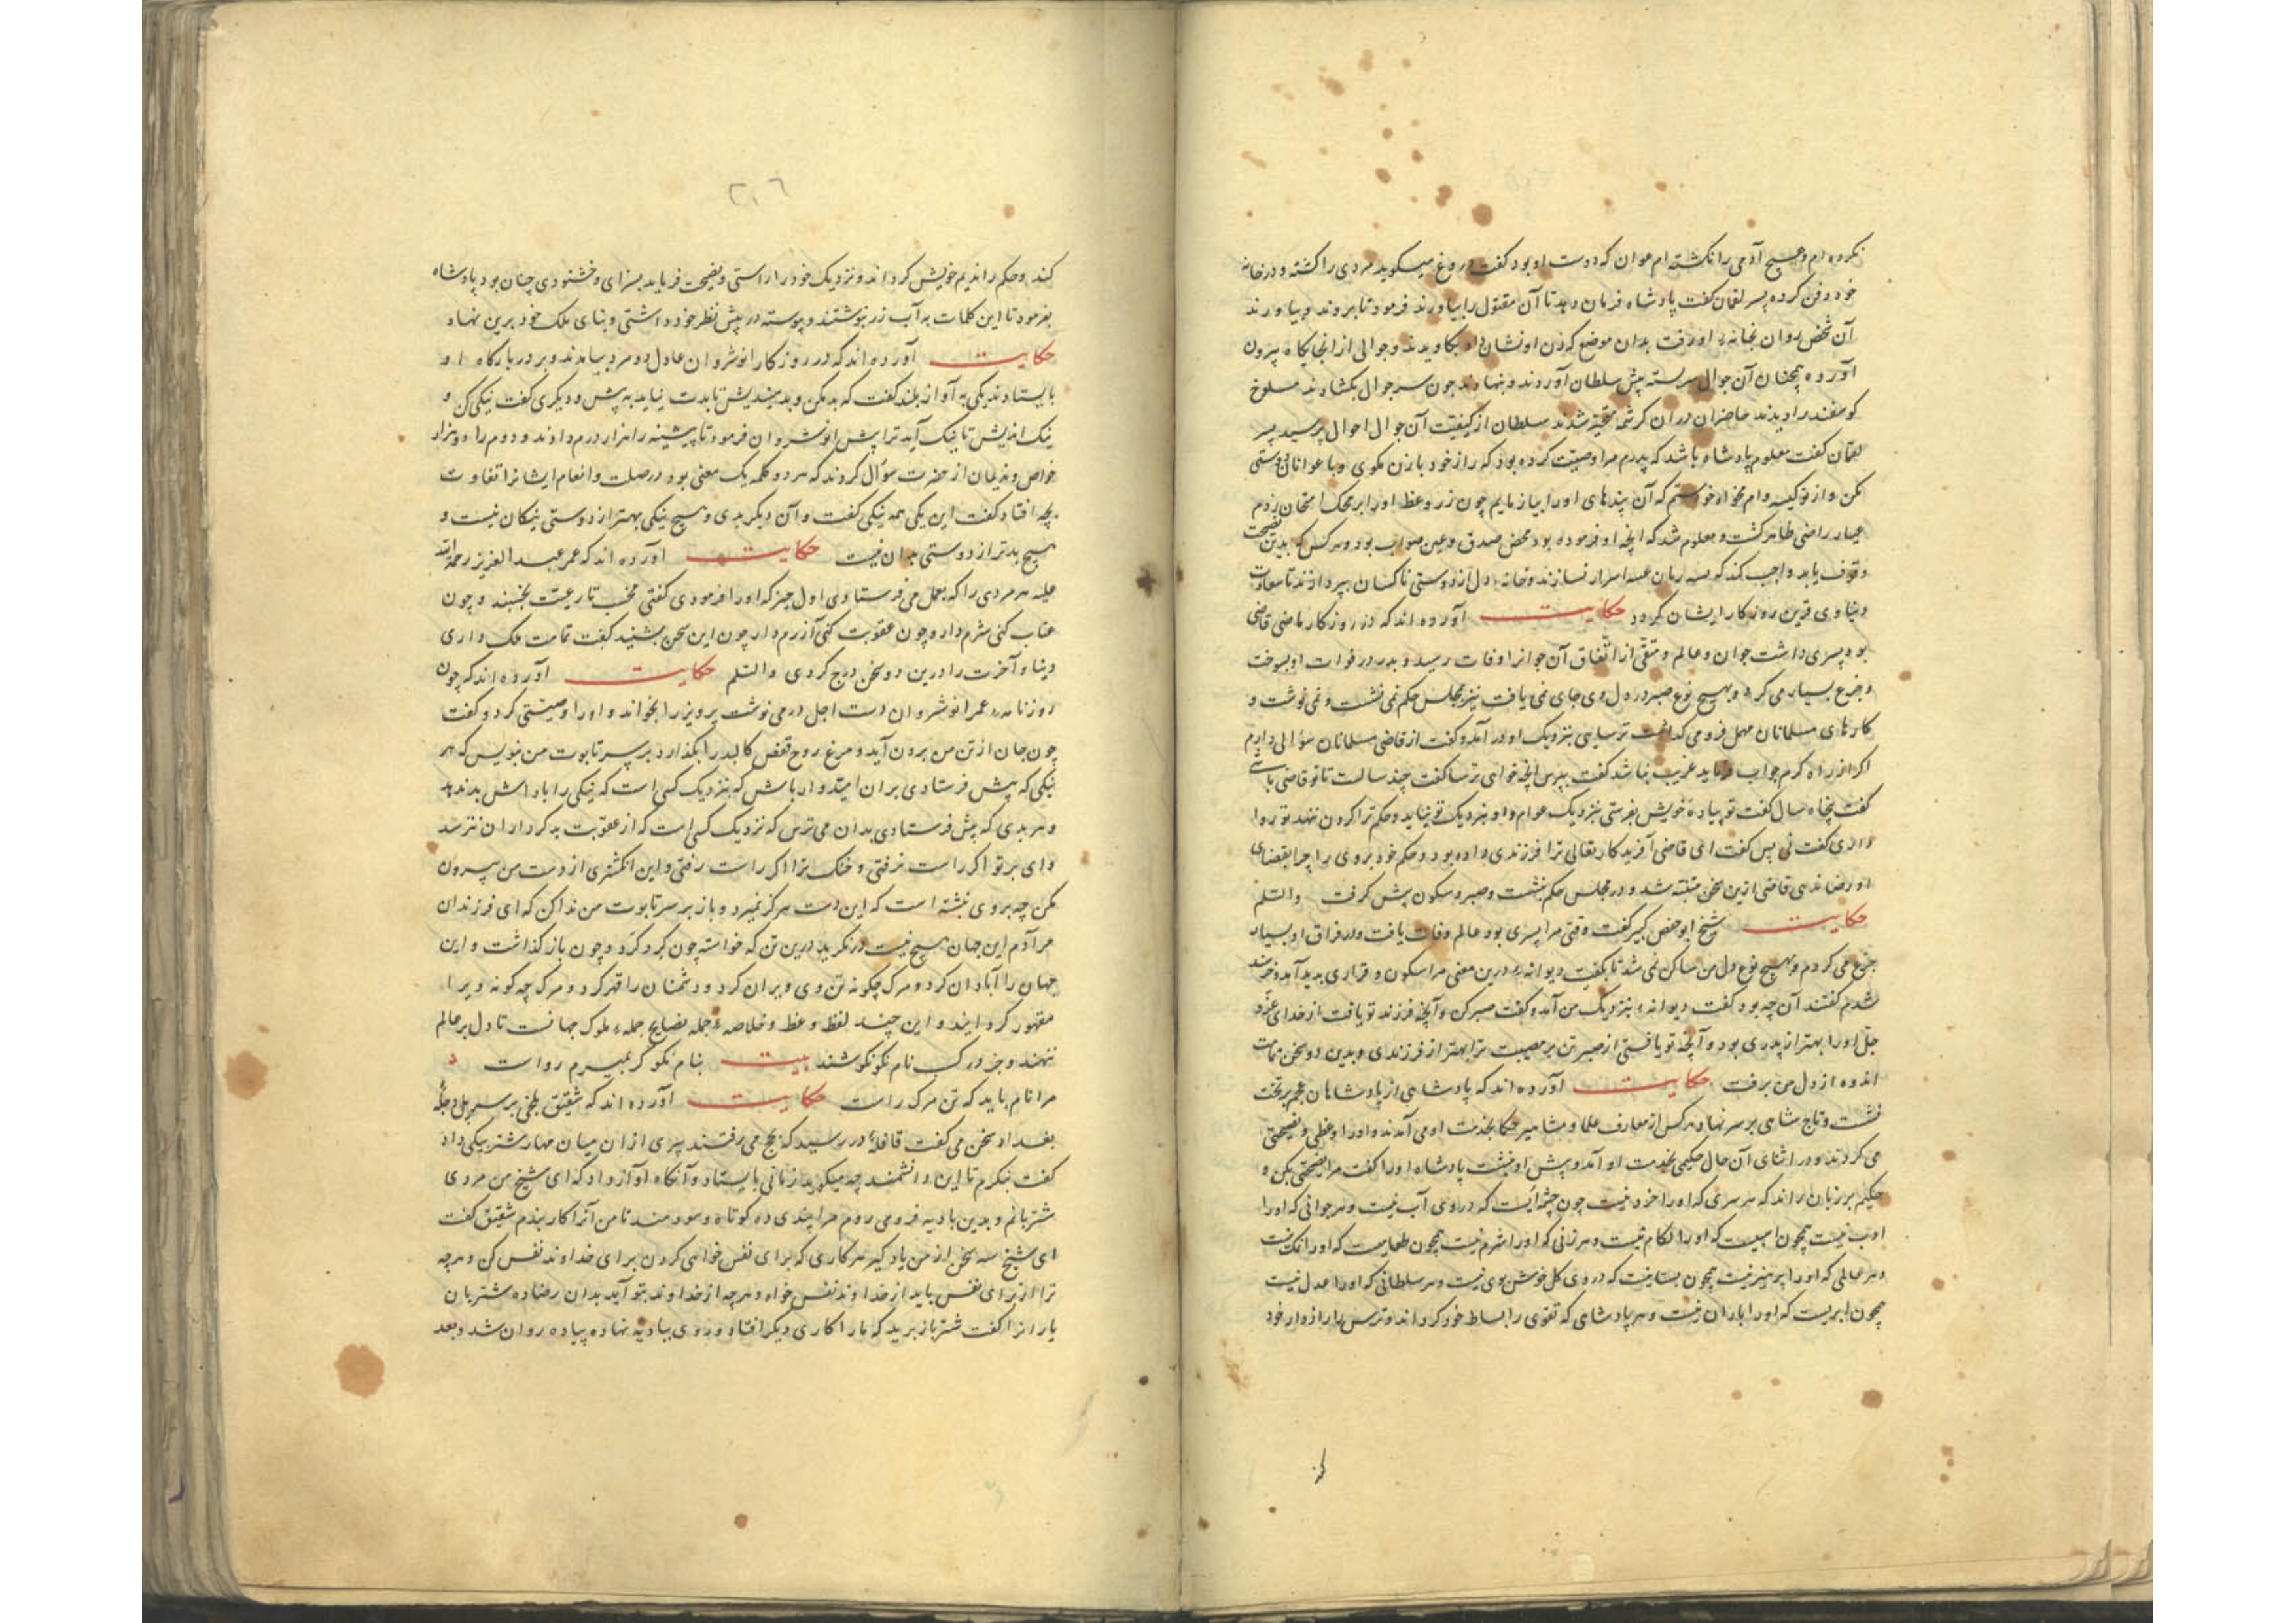 نکرده ام و هیچ آدمی را نکشته ام عوان که دوست او بود کفت دروغ میکوید مردی را کشته و در خانه
خود دفن کرده پسر لقمان کفت پادشاه فرمان دهد تا آن مقتول را بیاورند فرمود تا بروند و بیاورند
آن شخص روان بخانهٔ او رفت بدان موضع که زن او نشان داد بکاویدند و جوالی از انجایکاه بیرون
آوردند همچنان آن جوال سربسته پیش سلطان آوردند و بنهادند چون سر جوال بکشادند مسلوخ
کوسفند را دیدند حاضران در آن کرشمه متحیّر شدند سلطان از کیفیّت آن جوال احوال پرسید پسر
لقمان کفت معلوم پادشاه باشد که پدرم مرا وصیّت کرده بود که راز خود با زن مکوی و با عوانان دوستی
مکن و از نوکیسه وام مخواه خواستم که آن پندهای او را بیازمایم چون زر وعظ او را بر محک امتحان زدم
عیار راضی ظاهر کشت و معلوم شد که انچه او فرموده بود محض صدق و عین صواب بود و هر کس که بدین نصیحت
وقوف یابد واجب کند که زبان اسرار نسازند و خانهٔ دل از دوستی ناکسان بپردازند تا سعادت
دنیاوی قرین روزکار ایشان کردد حکایت آورده اند که در روزکار ماضی قاضی
بود پسری داشت جوان و عالم و متقی از اتّفاق آن جوانرا وفات رسید و پدر در فوات او بسوخت
و جزع بسیار می کرد و بهیچ نوع صبر در دل وی جای نمی یافت نیز بمجلس حکم نمی نشست و نمی نوشت و
کارهای مسلمانان مهمل فرو می کذاشت ترسایی بنزدیک او در آمد و کفت از قاضی مسلمانان سؤالی دارم
اکر از راه کرم جواب فرماید غریب نباشد کفت بپرس انچه خواهی ترسا کفت چند سالست تا تو قاضی باشی
کفت پنجاه سال کفت تو پیادهٔ خویش بفرستی بنزدیک عوام و او بنزدیک تو نیاید و حکم ترا کردن ننهد تو روا
داری کفت نی پس کفت ای قاضی آفریدکار تعالی ترا فرزندی داده بود و حکم خود بر وی راند چرا بقضای
او رضا ندهی قاضی ازین سخن متنبّه شد و در مجلس حکم بنشست و صبر و سکون پیش کرفت والسّلم
حکایت شیخ ابوحفص کبیر کفت وقتی مرا پسری بود عالم وفات یافت و در فراق او بسیار
جزع می کردم و بهیچ نوع دل من ساکن نمی شد تا بکفت دیوانهٔ درین معنی مرا سکون و قراری پدید آمد و خرسند
شدم کفتند آن چه بود کفت دیوانهٔ بنزدیک من آمد و کفت صبر کن و آنچه فرزند تو یافت از خدای عزّ و
جلّ او را بهتر از پدری بود و آنچه تو یافتی از صبر تن بر مصیبت ترا بهتر از فرزندی و بدین دو سخن تمامت
اندوه از دل من برفت حکایت آورده اند که پادشاهی از پادشاهان عجم بر تخت
نشست و تاج شاهی بر سر نهاد هر کس از معارف علما و مشاهیر حکما بخدمت او می آمدند و او را وعظی و نصیحتی
می کردند و در اثنای آن حال حکیمی بخدمت او آمد و پیش او بنشست پادشاه او را کفت مرا نصیحتی بکن و
حکیم بر زبان راند که هر سری که او را خرد نیست چون چشمه ایست که در وی آب نیست و هر جوانی که او را
ادب نیست همچون اسبیست که او را لکام نیست و هر زنی که او را شرم نیست همچون طعامیست که او را نمک نیست
و هر عالمی که او را پرهیز نیست همچون بستانیست که در وی کل خوش بوی نیست و هر سلطانی که او را عدل نیست
همچون ابریست که او را باران نیست و هر پادشاهی که تقوی را بساط خود کرداند و ترس را رازدار خود
کند
۲۰۶
کند و حکم را ندیم خویش کرداند و نزدیک خود را راستی و نصیحت فرماید بسزای و خشنودی چنان بود پادشاه
بفرمود تا این کلمات به آب زر نبوشتند و پیوسته در پیش نظر خود داشتی و بنای ملک خود برین نهاد
حکایت آورده اند که در روزکار انوشروان عادل دو مرد بیامدند و بر در بارکاه او
بایستادند یکی به آواز بلند کفت که بد مکن و بد میندیش تا بدت نیاید به پیش و دیکری کفت نیکی کن و
نیک اندیش تا نیک آید ترا پیش انوشروان فرمود تا پیشینه را هزار درم دادند و دوم را دو هزار
خواص و ندیمان از حضرت سؤال کردند که هر دو کلمه یک معنی بود در صلت و انعام ایشانرا تفاوت
بچه افتاد کفت این یکی همه نیکی کفت و آن دیکر بدی و هیچ نیکی بهتر از دوستی نیکان نیست و
هیچ بدتر از دوستی بدان نیست حکایت آورده اند که عمر عبد العزیز رحمة الله
علیه هر مردی را که بعمل می فرستادی اول چیز که او را فرمودی کفتی مخسب تا رعیّت بخسبند و چون
عتاب کنی شرم دار و چون عقوبت کنی آزرم دار چون این سخن بشنید کفت تمامت ملک داری
دنیا و آخرت را درین دو سخن درج کردی والسّلم حکایت آورده اند که چون
روزنامهٔ عمر انوشروان دست اجل در می نوشت پرویز را بخواند و او را وصیّتی کرد و کفت
چون جان از تن من برون آید و مرغ روح قفص کالبد را بکذارد بر سر تابوت من بنویس که هر
نیکی که پیش فرستادی بران امیدوار باش که بنزدیک کسی است که نیکی را پاداش بد ندهد
و هر بدی که پیش فرستادی بدان می ترس که نزدیک کسی است که از عقوبت بدکرداران نترسد
وای بر تو اکر راست نرفتی و خنک ترا اکر راست رفتی و این انکشتری از دست من بیرون
مکن چه بر وی نبشته است که این دست هرکز نمیرد و باز بر سر تابوت من ندا کن که ای فرزندان
مر آدم این جهان هیچ نیست در نکرید درین تن که خواسته چون کرد کرد و چون باز کذاشت و این
جهان را آبادان کرد و مرک چکونه تن وی ویران کرد و دشمنان را قهر کرد و مرک چه کونه ویرا
مقهور کردانید و این چند لفظ وعظ و خلاصهٔ جمله نصایح جملهٔ ملوک جهانست تا دل بر عالم
ننهند و جز در کسب نام نکو نکوشند بیت بنام نکو کر بمیرم رواست
مرا نام باید که تن مرک راست حکایت آورده اند که شقیق بلخی بر سر پل دجلهٔ
بغداد سخن می کفت قافلهٔ در رسید که بحج می رفتند پیری از ان میان مهار شتر بیکی داد
کفت بنکرم تا این دانشمند چه میکوید زمانی بایستاد و آنکاه آواز داد که ای شیخ من مردی
شتربانم و بدین بادیه فرو می روم مرا پندی ده کوتاه و سودمند تا من آنرا کار بندم شقیق کفت
ای شیخ سه سخن از من یاد کیر هر کاری که برای نفس خواهی کردن برای خداوند نفس کن و هرچه
ترا از برای نفس باید از خداوند نفس خواه و هرچه از خداوند بتو آید بدان رضا ده شتربان
یارانرا کفت شتر باز برید که ما را کاری دیکر افتاد و روی ببادیه نهاده پیاده روان شد و بعد